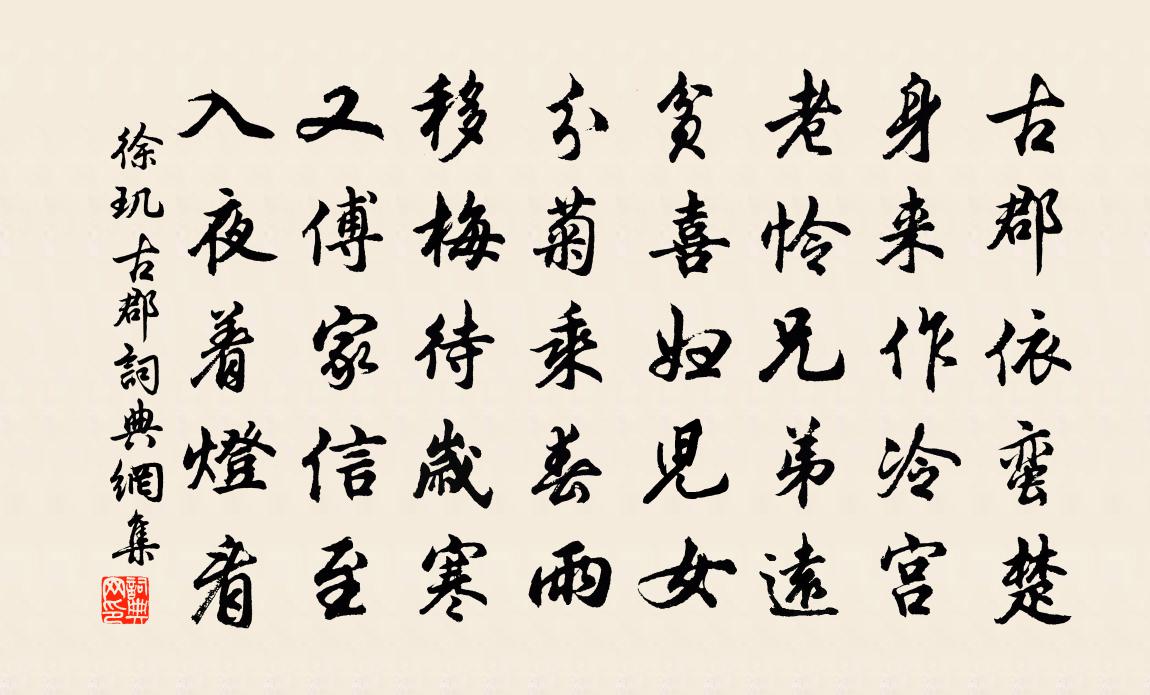 古郡依蛮楚
身来作冷宫
老怜兄弟遠
貧喜妇児女
分菊乘春雨
移梅待歳寒
又傅家信至
入夜着燈看
徐玑 古郡 詞典網集
詞典网印